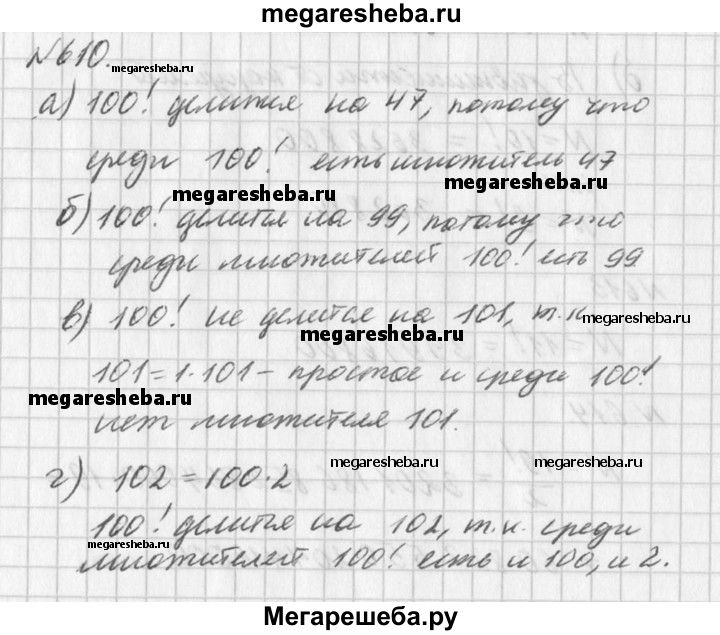 megaresheba.ru
№610.
megaresheba.ru
а) 100! делится на 47, потому что
среди 100! есть множитель 47
megaresheba.ru
megaresheba.ru
б) 100! делится на 99, потому что
среди множителей 100! есть 99
в) 100! не делится на 101, т.к
megaresheba.ru
megaresheba.ru
101=1·101 – простое и среди 100!
megaresheba.ru
нет множителя 101.
г) 102=100·2
megaresheba.ru
megaresheba.ru
100! делится на 102, т.к. среди
megaresheba.ru
множителей 100! есть и 100, и 2.
Мегарешеба.ру